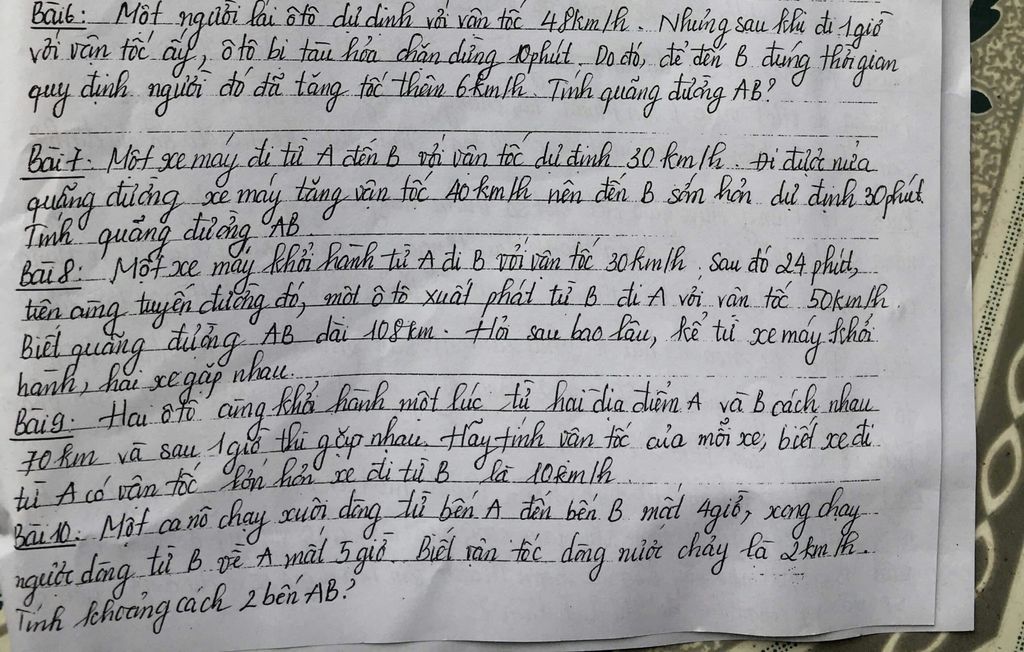 Bài 6: Một người lái ôtô dự định với vận tốc 48km/h. Nhưng sau khi đi 1 giờ
với vận tốc ấy, ôtô bị tàu hỏa chắn đường 10 phút. Do đó, để đến B đúng thời gian
quy định người đó đã tăng tốc thêm 6km/h. Tính quãng đường AB?
Bài 7: Một xe máy đi từ A đến B với vận tốc dự định 30 km/h. Đi được nửa
quãng đường xe máy tăng vận tốc 40 km/h nên đến B sớm hơn dự định 30 phút.
Tính quãng đường AB.
Bài 8: Một xe máy khởi hành từ A đi B với vận tốc 30km/h. Sau đó 24 phút,
trên cùng tuyến đường đó, một ô tô xuất phát từ B đi A với vận tốc 50km/h.
Biết quãng đường AB dài 108km. Hỏi sau bao lâu, kể từ xe máy khởi
hành, hai xe gặp nhau.
Bài 9: Hai ôtô cùng khởi hành một lúc từ hai địa điểm A và B cách nhau
70 km và sau 1 giờ thì gặp nhau. Hãy tính vận tốc của mỗi xe, biết xe đi
từ A có vận tốc lớn hơn xe đi từ B là 10km/h.
Bài 10: Một ca nô chạy xuôi dòng từ bến A đến bến B mất 4 giờ, xong chạy
ngược dòng từ B về A mất 5 giờ. Biết vận tốc dòng nước chảy là 2km/h.
Tính khoảng cách 2 bến AB?